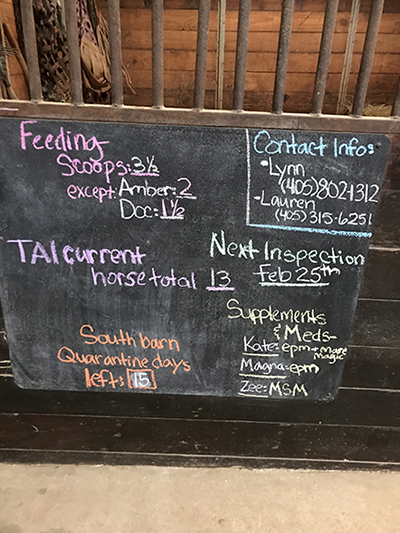 Feeding
Scoops: 3½
except: Amber: 2
Doc: 1½
Contact Info:
-Lynn
(405)802-1312
-Lauren
(405)315-6251
TAI current
horse total 13
Next Inspection
Feb 25th
South barn
Quarantine days
left: 15
Supplements
& Meds-
Kate: epm + mare
magic
Magna-epm
Zee: MSM